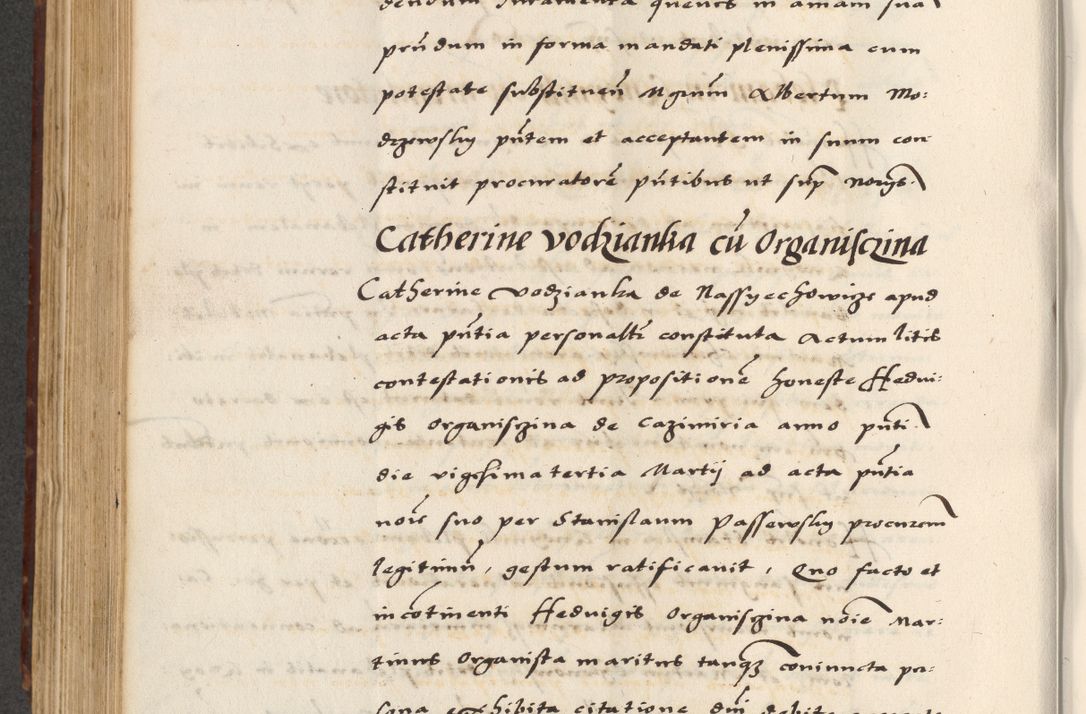 dendum Juramenta quevis in aniam sua
pñdum in forma mandati plenissima cum
potestate substituen̄ Mgrum̄ Albertum Mo:
drzowsky pñtem et acceptantem in suum con
stituit procuratorē pñtibus ut sup̄ Norgs.
Catherine Vodzianka cū Organisczina
Catherine Vodzianka de Nassyechowize apud
acta pñtia personaltr̄ constituta Actum litis
contestationis ad propositionē honeste Hedui:
gis Organisczina de Cazimiria anno pñti
die vigesima tertia Martij ad acta pñtia
noīe suo per Stanislaum Passewsky procurem
legitimū, gestum ratificavit, Quo facto et
in cōtinenti Heduigis Organisczina nōie Mar:
tinus Organista maritus tanqz coniuncta per:
sona exhibita citatione dn̄i debite